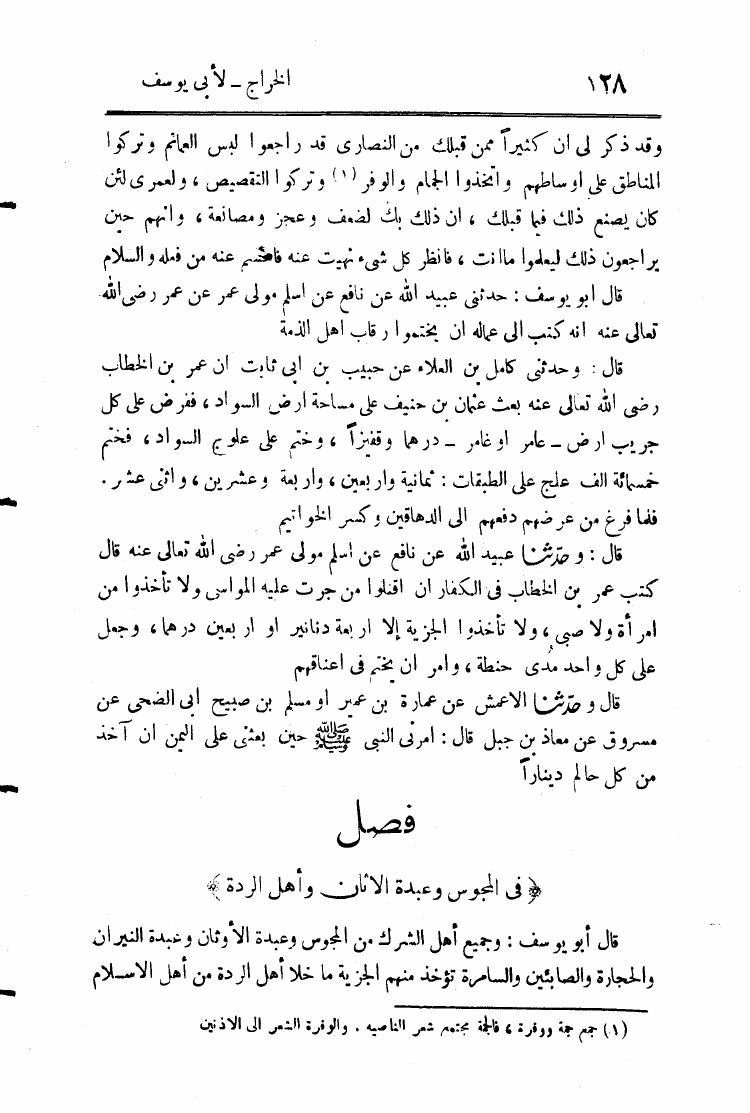 ١٢٨
الخراج ـ لأبى يوسف
وقد ذكر لى ان كثيراً ممن قبلك من النصارى قد راجعوا لبس العمائم وتركوا
المناطق على اوساطهم واتخذوا الجمام والوفر (١) وتركوا التقصيص ، ولعمرى لئن
كان يصنع ذلك فيما قبلك ، ان ذلك بك لضعف وعجز ومصانعة ، وانهم حين
يراجعون ذلك ليعلموا ما انت ، فانظر كل شىء نهيت عنه فاحسم عنه من فعله والسلام
قال ابو يوسف : حدثنى عبيد الله عن نافع عن اسلم مولى عمر عن عمر رضى الله
تعالى عنه انه كتب الى عماله ان يختموا رقاب اهل الذمة
قال : وحدثنى كامل بن العلاء عن حبيب بن ابى ثابت ان عمر بن الخطاب
رضى الله تعالى عنه بعث عثمان بن حنيف على مساحة ارض السواد ، ففرض على كل
جريب ارض ـ عامر او غامر ـ درهما وقفيزاً ، وختم على علوج السواد ، فختم
خمسمائة الف علج على الطبقات : ثمانية واربعين ، واربعة وعشرين ، واثنى عشر .
فلما فرغ من عرضهم دفعهم الى الدهاقين وكسر الخواتيم
قال : وحدثنا عبيد الله عن نافع عن اسلم مولى عمر رضى الله تعالى عنه قال
كتب عمر بن الخطاب فى الكفار ان اقتلوا من جرت عليه المواسى ولا تأخذوا من
امرأة ولا صبى ، ولا تأخذوا الجزية إلا اربعة دنانير او اربعين درهما ، وجعل
على كل واحد مُدى حنطة ، وامر ان يختم فى اعناقهم
قال وحدثنا الاعمش عن عمارة بن عمير او مسلم بن صبيح ابى الضحى عن
مسروق عن معاذ بن جبل قال : امرنى النبى ﷺ حين بعثنى على اليمن ان آخذ
من كل حالم ديناراً
فصل
﴿ فى المجوس وعبدة الاثان وأهل الردة ﴾
قال أبو يوسف : وجميع أهل الشرك من المجوس وعبدة الأوثان وعبدة النيران
والحجارة والصابئين والسامرة تؤخذ منهم الجزية ما خلا أهل الردة من أهل الاسلام
(١) جمع جمة ووفرة ، فالجمة مجتمع شعر الناصيه . والوفرة الشعر الى الاذنين